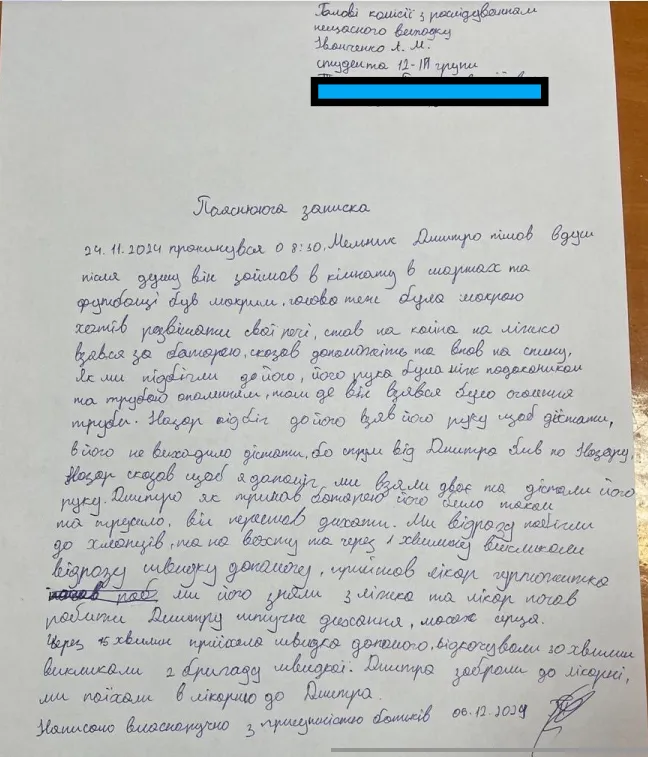 Голові комісії з розслідуванням
нещасного випадку
Іванченко Л. М.
студента 12-ІП групи
Пояснююча записка
24.11.2024 прокинувся о 8:30, Мельник Дмитро пішов в душ
після душу він займав в кімнату в шортах та
футболці був мокрим, голова теж була мокрою
хотів розвішати свої речі, став на коліна на ліжко
взявся за батарею, сказав допоможіть та впав на спину,
як ми підбігли до його, його рука була між подоконником
та трубою опалення, там де він взявся було оголення
труби. Назар підбіг до його взяв його руку щоб дістати,
в його не виходило дістати, бо струм від Дмитра бив по Назару,
Назар сказав щоб я допоміг, ми взяли двоє та дістали його
руку. Дмитро як тримав батарею його било током
та трусило, він перестав дихати. Ми відразу побігли
до хлопців, та на вахту та через 1 хвилину викликали
відразу швидку допомогу, прийшов лікар гуртожитка
ми його зняли з ліжка та лікар почав
робити Дмитру штучне дихання, масаж серця.
Через 15 хвилин приїхала швидка допомога, відкачували 30 хвилин
викликали 2 бригаду швидкої. Дмитра забрали до лікарні,
ми поїхали в лікарню до Дмитра.
Написано власноручно з присутністю батьків 06.12.2024